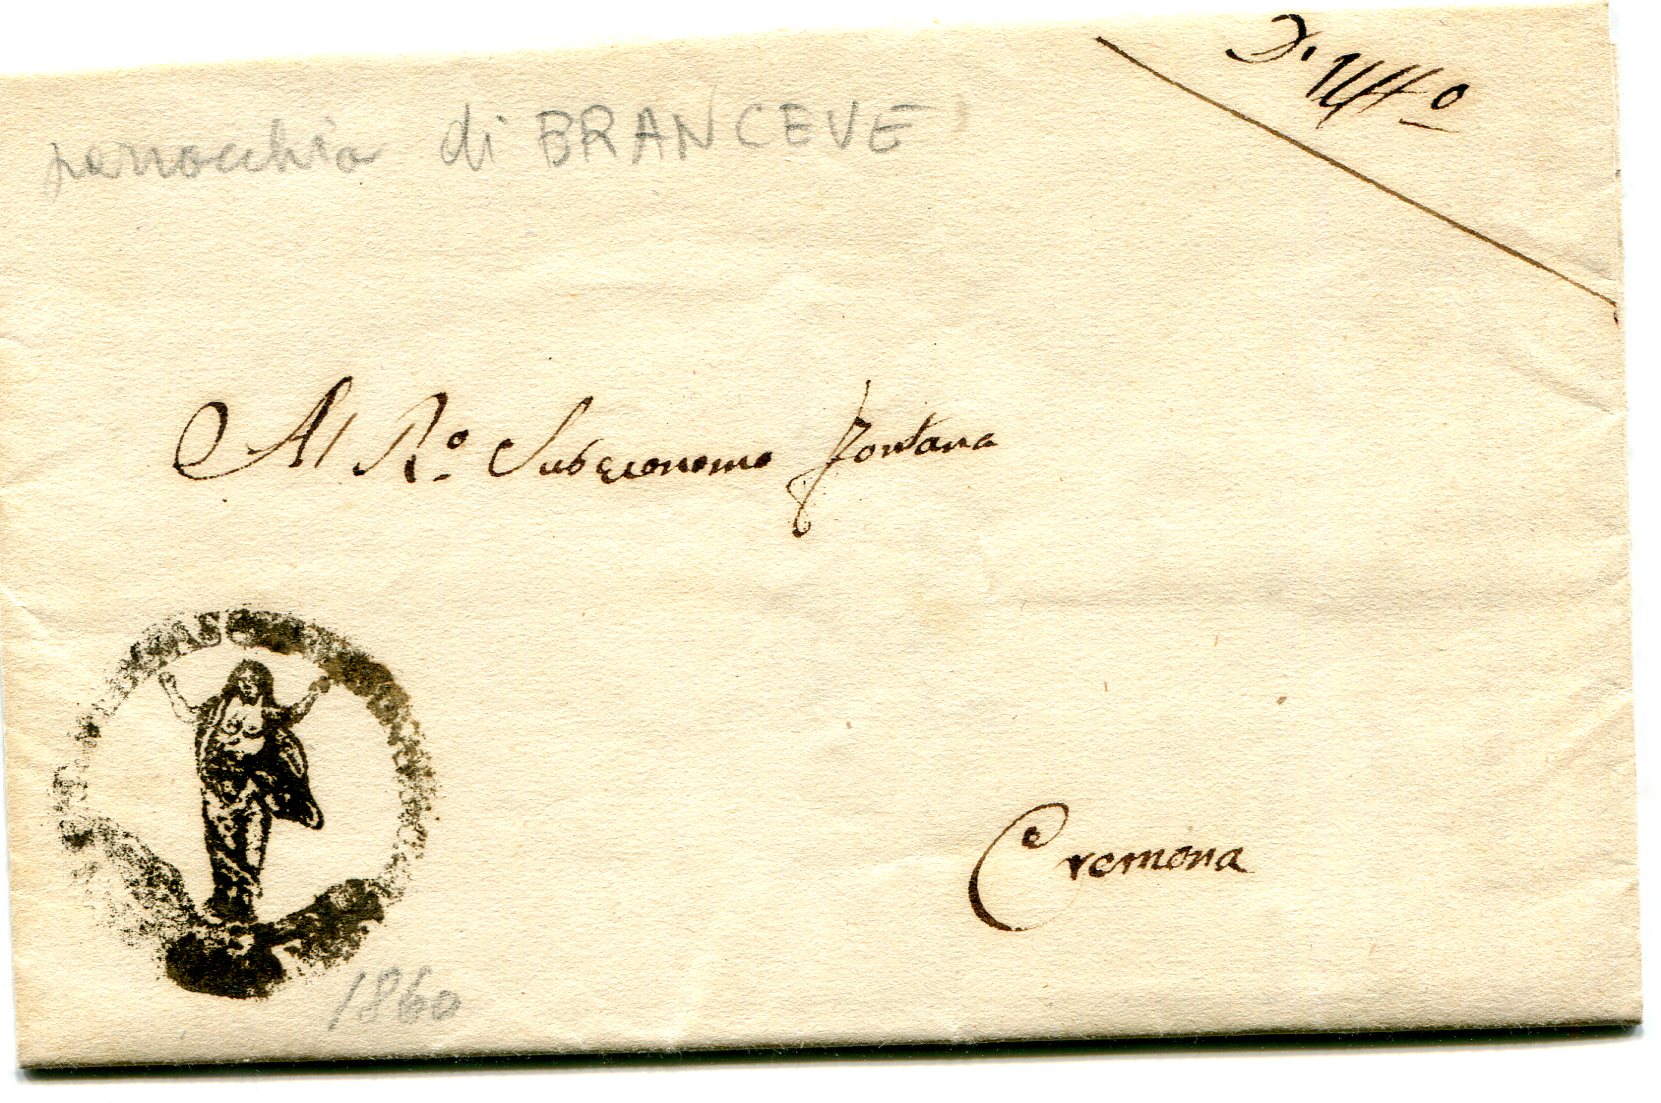 D'Uff.o
parrocchia di BRANCEVE
Al R.o Subeconomo Fontana
Cremona
1860